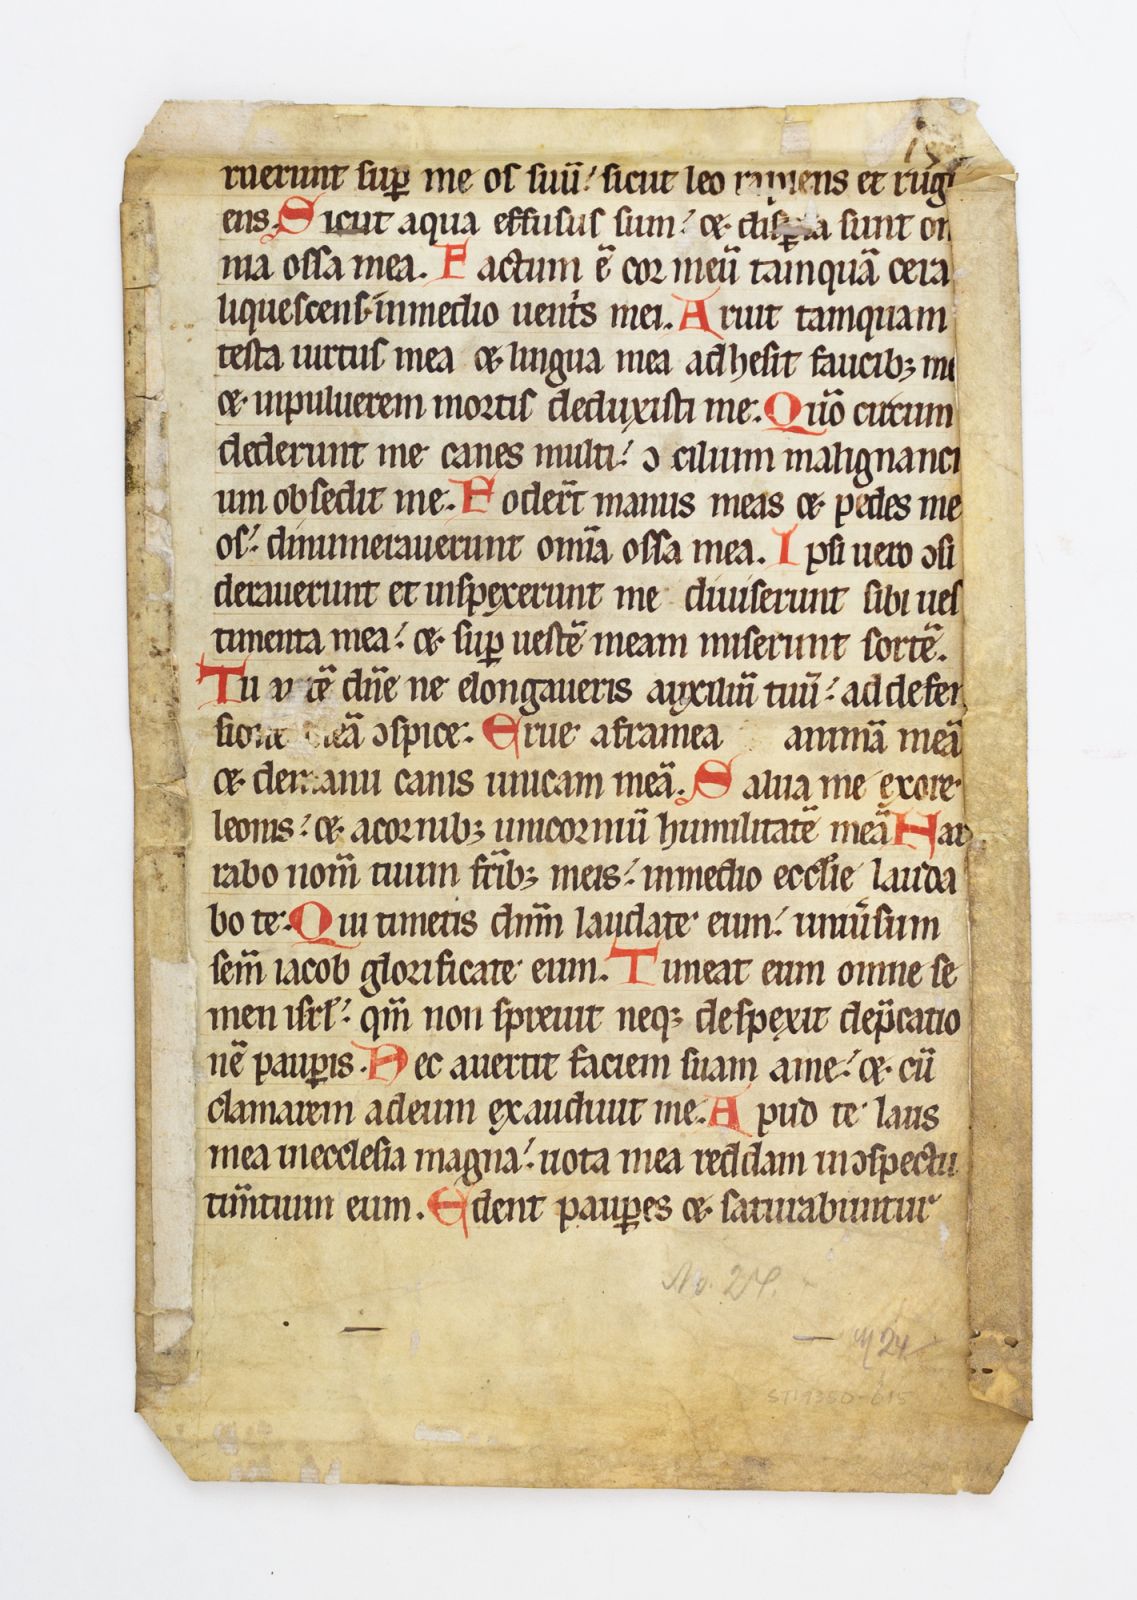 ruerunt suꝑ me os suū: sicut leo rapiens et rugi
ens. Sicut aqua effusus sum: et disꝑsa sunt om
nia ossa mea. Factum ē cor meū tamquā cera
liquescens in medio uent's mei. Aruit tamquam
testa uirtus mea et lingua mea adhesit faucibꝫ me
et inpuluerem mortis deduxisti me. Quō circum
dederunt me canes multi: ↄcilium malignanci
um obsedit me. Foder̄t manus meas et pedes me
os: dinumerauerunt om̄ia ossa mea. Ipsi uero ↄsi
derauerunt et inspexerunt me diuiserunt sibi ues
timenta mea: et suꝑ uestē meam miserunt sortē.
Tu autē dn̄e ne elongaueris auxiliū tuū: ad defen
sionē meā ↄspice. Erue aframea animā meā
et demanu canis unicam meā. Salua me exore
leonis: et acornibꝫ unicorniū humilitatē meā Nar
rabo nom̄ tuum fr̄ibꝫ meis: inmedio eccl'ie lauda
bo te. Qui timetis dn̄m laudate eum: uniūsum
sem̄ iacob glorificate eum. Timeat eum omne se
men isrl': qm̄ non spreuit neqꝫ despexit dep̄catio
nē pauꝑis. Nec auertit faciem suam ame: et cū
clamarem adeum exaudiuit me. Apud te laus
mea inecclesia magna: uota mea reddam inↄspectu
tim̄tium eum. Edent pauꝑes et saturabuntur
No. 24.
24
ST19350-615